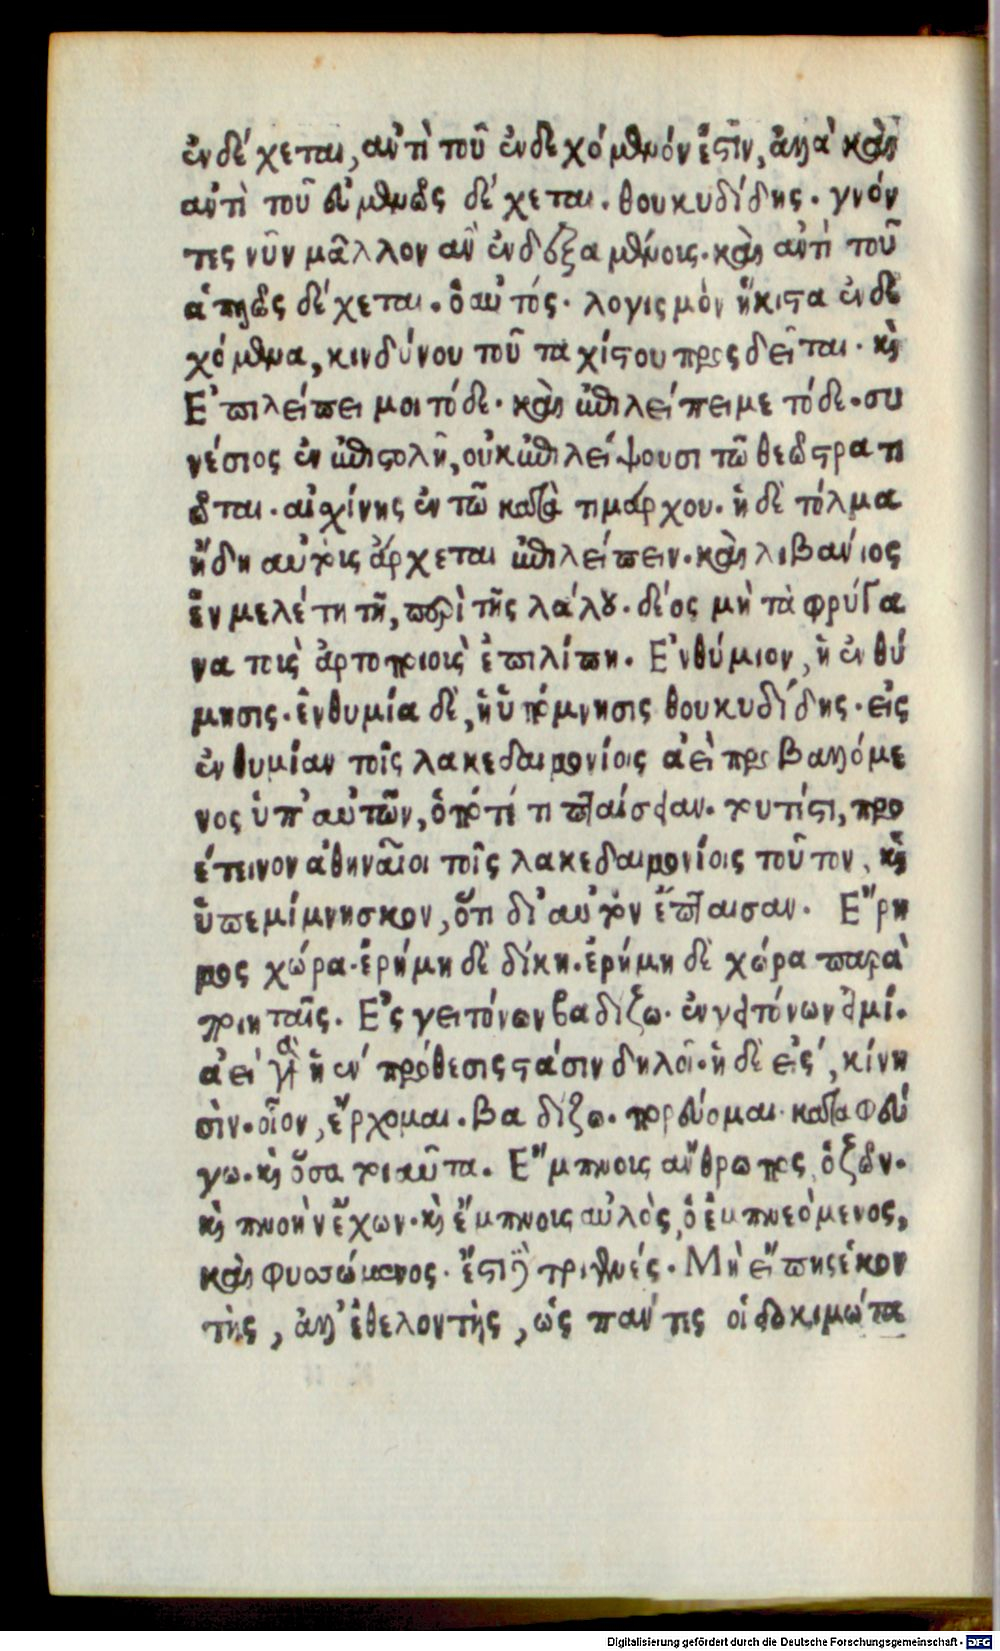 ἐνδέχεται, ἀντὶ τοῦ ἐνδεχόμενόν ἐστιν, ἀλλὰ καὶ
ἀντὶ τοῦ εὐμενῶς δέχεται. θουκυδίδης. γνόν
τες νῦν μᾶλλον ἂν ἐνδεξαμένοις. καὶ ἀντὶ τοῦ
ἁπλῶς δέχεται. ὁ αὐτός. λογισμὸν ἥκιστα ἐνδε
χόμενα, κινδύνου τοῦ ταχίστου προσδεῖται. καὶ
Ἐπιλείπει μοι τόδε. καὶ ἐπιλείπει με τόδε. συ
νέσιος ἐν ἐπιστολῆ, οὐκ ἐπιλείψουσι τῶ θεῶ στρατι
ῶται. αἰσχίνης ἐν τῶ κατὰ τιμάρχου. ἡ δὲ τόλμα
ἤδη αὐτοὶς ἄρχεται ἐπιλείπειν. καὶ λιβανίος
ἐν μελέτη τῆ, περὶ τῆς λάλου. δέος μὴ τὰ φρύγα
να τοὶς ἀρτοποιοὶς ἐπιλίπη. Ἐνθύμιον, ἡ ἐνθύ
μησις. ἐνθυμία δὲ, ἡ ὑπόμνησις θουκυδίδης. εἰς
ἐνθυμίαν τοῖς λακεδαιμονίοις ἀεὶ προβαλλόμε
νος ὑπ' αὐτῶν, ὁπότε τι πταίσειαν. τουτέστι, προ
έτεινον ἀθηναῖοι τοῖς λακεδαιμονίοις τοῦτον, καὶ
ὑπεμίμνησκον, ὅτι δι' αὐτὸν ἔπταισαν. Ἔρη
μος χώρα. ἐρήμη δὲ δίκη. ἐρήμη δὲ χώρα παρὰ
ποιηταῖς. Ἐς γειτόνων βαδίζω. ἐν γειτόνων εἰμί.
ἀεὶ γὰρ ἡ ἐν πρόθεσις στάσιν δηλοῖ. ἡ δὲ εἰς, κίνη
σιν. οἷον, ἔρχομαι. βαδίζω. πορεύομαι. καταφεύ
γω. καὶ ὅσα τοιαῦτα. Ἔμπνοις ἄνθρωπος, ὁ ζῶν.
καὶ πνοὴν ἔχων. καὶ ἔμπνοις αὐλὸς, ὁ ἐμπνεόμενος,
καὶ φυσώμενος. ἔστι δὲ τριγενές. Μὴ εἴπης ἑκον
τὴς, ἀλλ' ἐθελοντὴς, ὡς πάντες οἱ δοκιμώτα
Digitalisierung gefördert durch die Deutsche Forschungsgemeinschaft - DFG